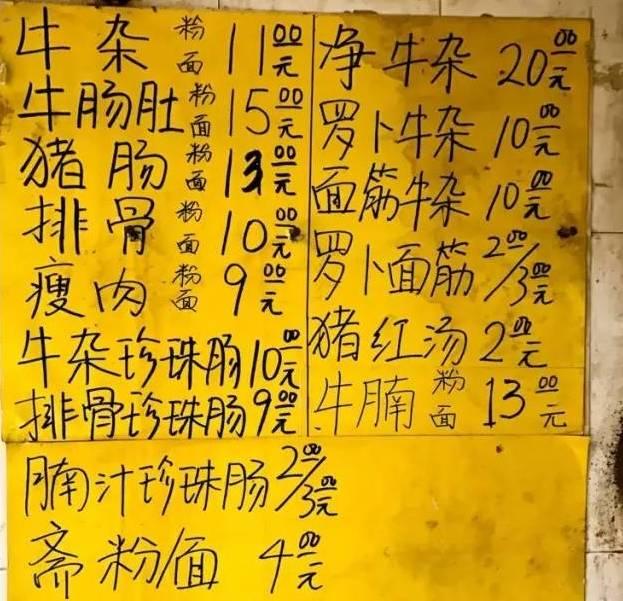 牛杂粉面11.00元
牛肠肚粉面15.00元
猪肠粉面13.00元
排骨粉面10.00元
瘦肉粉面9.00元
牛杂珍珠肠10.00元
排骨珍珠肠9.00元
净牛杂20.00元
罗卜牛杂10.00元
面筋牛杂10.00元
罗卜面筋2.00/3.00元
猪红汤2.00元
牛腩粉面13.00元
腩汁珍珠肠2.00/3.00元
斋粉面4.00元